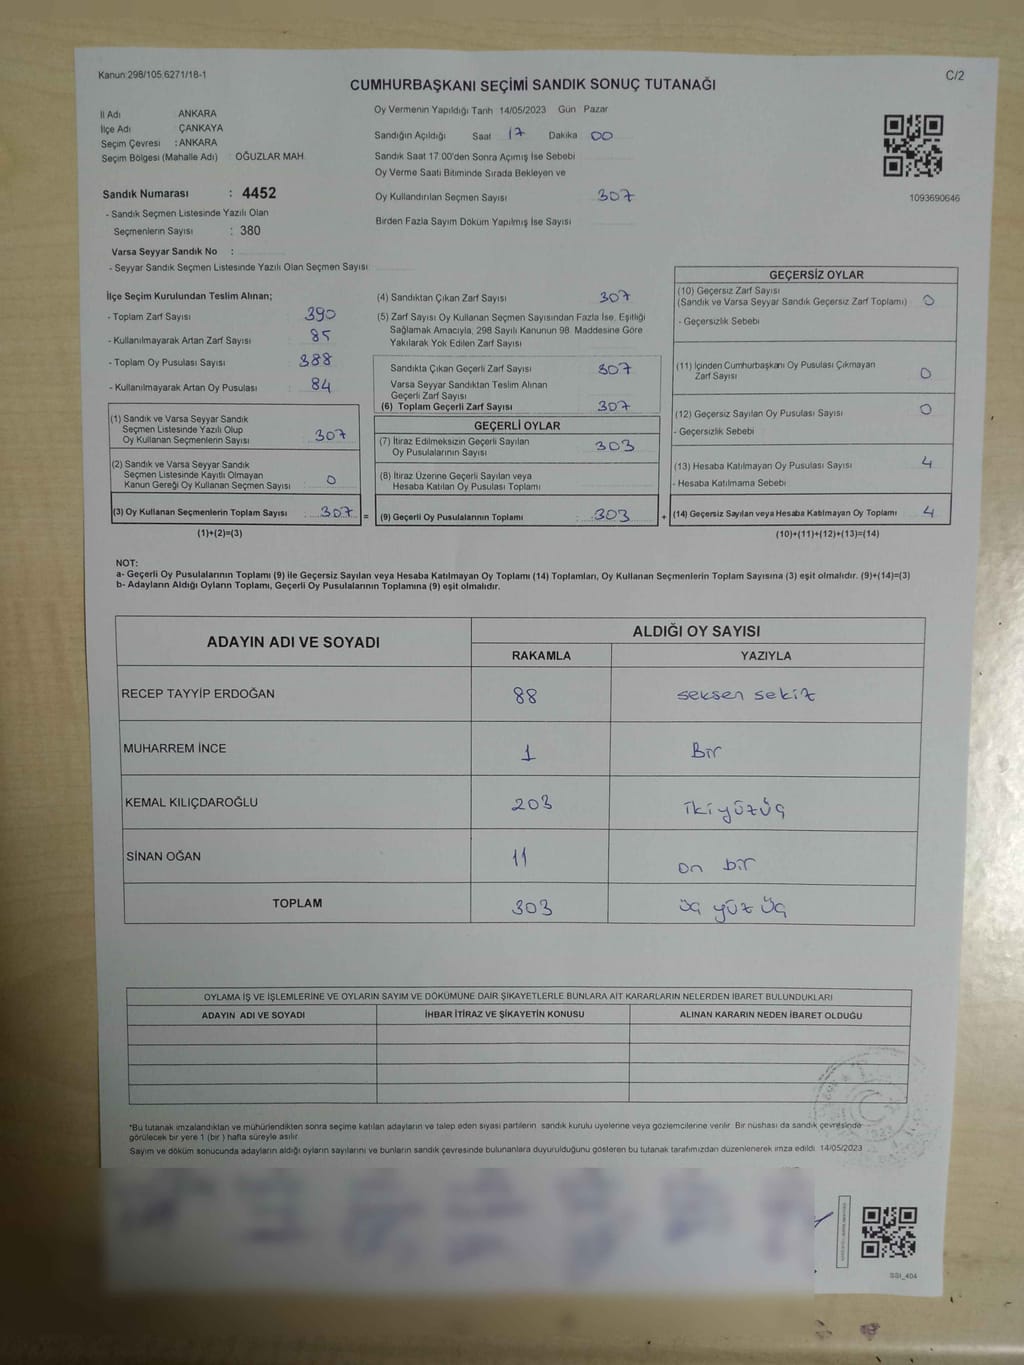 Kanun:298/105,6271/18-1
C/2
CUMHURBAŞKANI SEÇİMİ SANDIK SONUÇ TUTANAĞI
İl Adı ANKARA
İlçe Adı ÇANKAYA
Seçim Çevresi : ANKARA
Seçim Bölgesi (Mahalle Adı) : OĞUZLAR MAH.
Sandık Numarası : 4452
- Sandık Seçmen Listesinde Yazılı Olan
Seçmenlerin Sayısı : 380
Varsa Seyyar Sandık No :
- Seyyar Sandık Seçmen Listesinde Yazılı Olan Seçmen Sayısı
Oy Vermenin Yapıldığı Tarih 14/05/2023 Gün Pazar
Sandığın Açıldığı Saat 17 Dakika 00
Sandık Saat 17:00'den Sonra Açımış İse Sebebi
Oy Verme Saati Bitiminde Sırada Bekleyen ve
Oy Kullandırılan Seçmen Sayısı 307
Birden Fazla Sayım Döküm Yapılmış İse Sayısı
1093690646
İlçe Seçim Kurulundan Teslim Alınan;
- Toplam Zarf Sayısı 390
- Kullanılmayarak Artan Zarf Sayısı 85
- Toplam Oy Pusulası Sayısı 388
- Kullanılmayarak Artan Oy Pusulası 84
(1) Sandık ve Varsa Seyyar Sandık
Seçmen Listesinde Yazılı Olup
Oy Kullanan Seçmenlerin Sayısı 307
(2) Sandık ve Varsa Seyyar Sandık
Seçmen Listesinde Kayıtlı Olmayan
Kanun Gereği Oy Kullanan Seçmen Sayısı 0
(3) Oy Kullanan Seçmenlerin Toplam Sayısı 307 =
(1)+(2)=(3)
(4) Sandıktan Çıkan Zarf Sayısı 307
(5) Zarf Sayısı Oy Kullanan Seçmen Sayısından Fazla İse, Eşitliği
Sağlamak Amacıyla, 298 Sayılı Kanunun 98. Maddesine Göre
Yakılarak Yok Edilen Zarf Sayısı
Sandıkta Çıkan Geçerli Zarf Sayısı 307
Varsa Seyyar Sandıktan Teslim Alınan
Geçerli Zarf Sayısı
(6) Toplam Geçerli Zarf Sayısı 307
GEÇERLİ OYLAR
(7) İtiraz Edilmeksizin Geçerli Sayılan
Oy Pusulalarının Sayısı 303
(8) İtiraz Üzerine Geçerli Sayılan veya
Hesaba Katılan Oy Pusulası Toplamı
(9) Geçerli Oy Pusulalarının Toplamı : 303 +
GEÇERSİZ OYLAR
(10) Geçersiz Zarf Sayısı
(Sandık ve Varsa Seyyar Sandık Geçersiz Zarf Toplamı) 0
- Geçersizlik Sebebi
(11) İçinden Cumhurbaşkanı Oy Pusulası Çıkmayan
Zarf Sayısı 0
(12) Geçersiz Sayılan Oy Pusulası Sayısı 0
- Geçersizlik Sebebi
(13) Hesaba Katılmayan Oy Pusulası Sayısı 4
- Hesaba Katılmama Sebebi
(14) Geçersiz Sayılan veya Hesaba Katılmayan Oy Toplamı 4
(10)+(11)+(12)+(13)=(14)
NOT:
a- Geçerli Oy Pusulalarının Toplamı (9) ile Geçersiz Sayılan veya Hesaba Katılmayan Oy Toplamı (14) Toplamları, Oy Kullanan Seçmenlerin Toplam Sayısına (3) eşit olmalıdır. (9)+(14)=(3)
b- Adayların Aldığı Oyların Toplamı, Geçerli Oy Pusulalarının Toplamına (9) eşit olmalıdır.
ADAYIN ADI VE SOYADI
ALDIĞI OY SAYISI
RAKAMLA YAZIYLA
RECEP TAYYİP ERDOĞAN 88 seksen sekiz
MUHARREM İNCE 1 Bir
KEMAL KILIÇDAROĞLU 203 ikiyüzüç
SİNAN OĞAN 11 on bir
TOPLAM 303 üç yüz üç
OYLAMA İŞ VE İŞLEMLERİNE VE OYLARIN SAYIM VE DÖKÜMÜNE DAİR ŞİKAYETLERLE BUNLARA AİT KARARLARIN NELERDEN İBARET BULUNDUKLARI
ADAYIN ADI VE SOYADI İHBAR İTİRAZ VE ŞİKAYETİN KONUSU ALINAN KARARIN NEDEN İBARET OLDUĞU
*Bu tutanak imzalandıktan ve mühürlendikten sonra seçime katılan adayların ve talep eden siyasi partilerin sandık kurulu üyelerine veya gözlemcilerine verilir. Bir nüshası da sandık çevresinde
görülecek bir yere 1 (bir) hafta süreyle asılır.
Sayım ve döküm sonucunda adayların aldığı oyların sayılarını ve bunların sandık çevresinde bulunanlara duyurulduğunu gösteren bu tutanak tarafımızdan düzenlenerek imza edildi. 14/05/2023
SSI_404